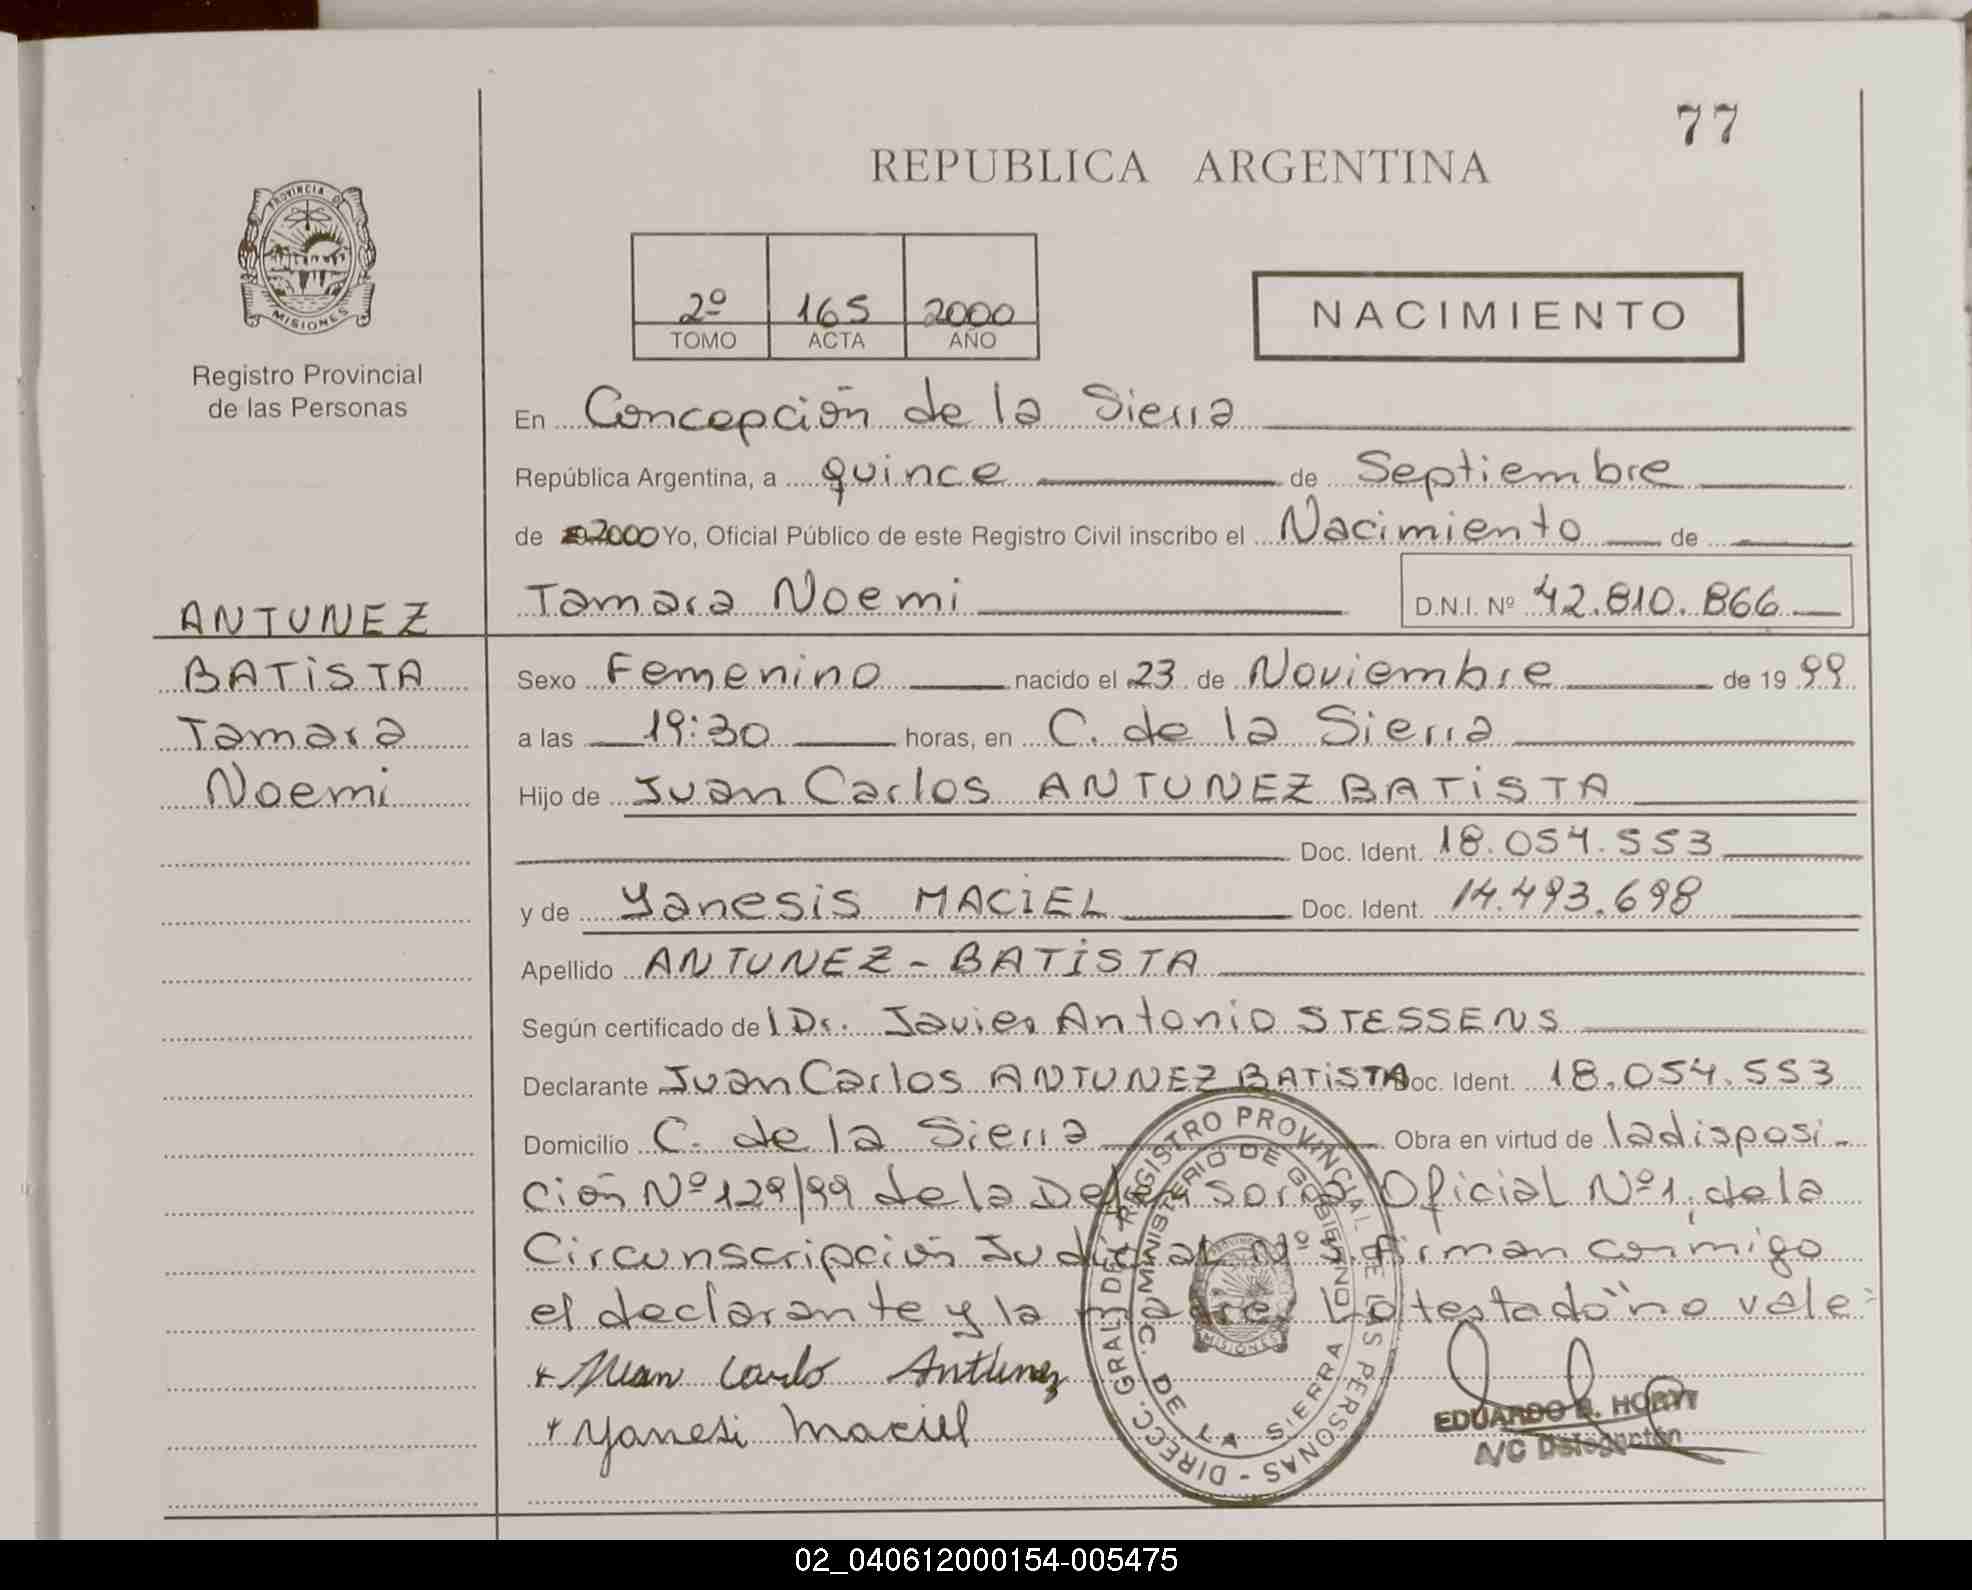 77
REPUBLICA ARGENTINA
PROVINCIA DE
MISIONES
Registro Provincial
de las Personas
2º 165 2000
TOMO ACTA AÑO
NACIMIENTO
En Concepción de la Sierra
República Argentina, a quince de Septiembre
de 2000 Yo, Oficial Público de este Registro Civil inscribo el Nacimiento de
Tamara Noemi D.N.I. Nº 42.810.866
ANTUNEZ
BATISTA
Tamara
Noemi
Sexo Femenino nacido el 23 de Noviembre de 19 99
a las 19:30 horas, en C. de la Sierra
Hijo de Juan Carlos ANTUNEZ BATISTA
Doc. Ident. 18.054.553
y de Yanesis MACIEL Doc. Ident. 14.493.698
Apellido ANTUNEZ - BATISTA
Según certificado del Dr. Javier Antonio STESSENS
Declarante Juan Carlos ANTUNEZ BATISTA Doc. Ident. 18.054.553
Domicilio C. de la Sierra Obra en virtud de la disposi-
ción Nº 129/99 de la Defensoria Oficial Nº 1, de la
Circunscripción Judicial Nº firman conmigo
el declarante y la madre. Lo testado "no vale
+ Juan Carlo Antunez
+ Yanesi Maciel
DIRECC. GRAL. DEL REGISTRO PROVINCIAL DE LAS PERSONAS -
MINISTERIO DE GOBIERNO
C. DE LA SIERRA
MISIONES
EDUARDO R. HORTT
A/C Delegación
02_040612000154-005475